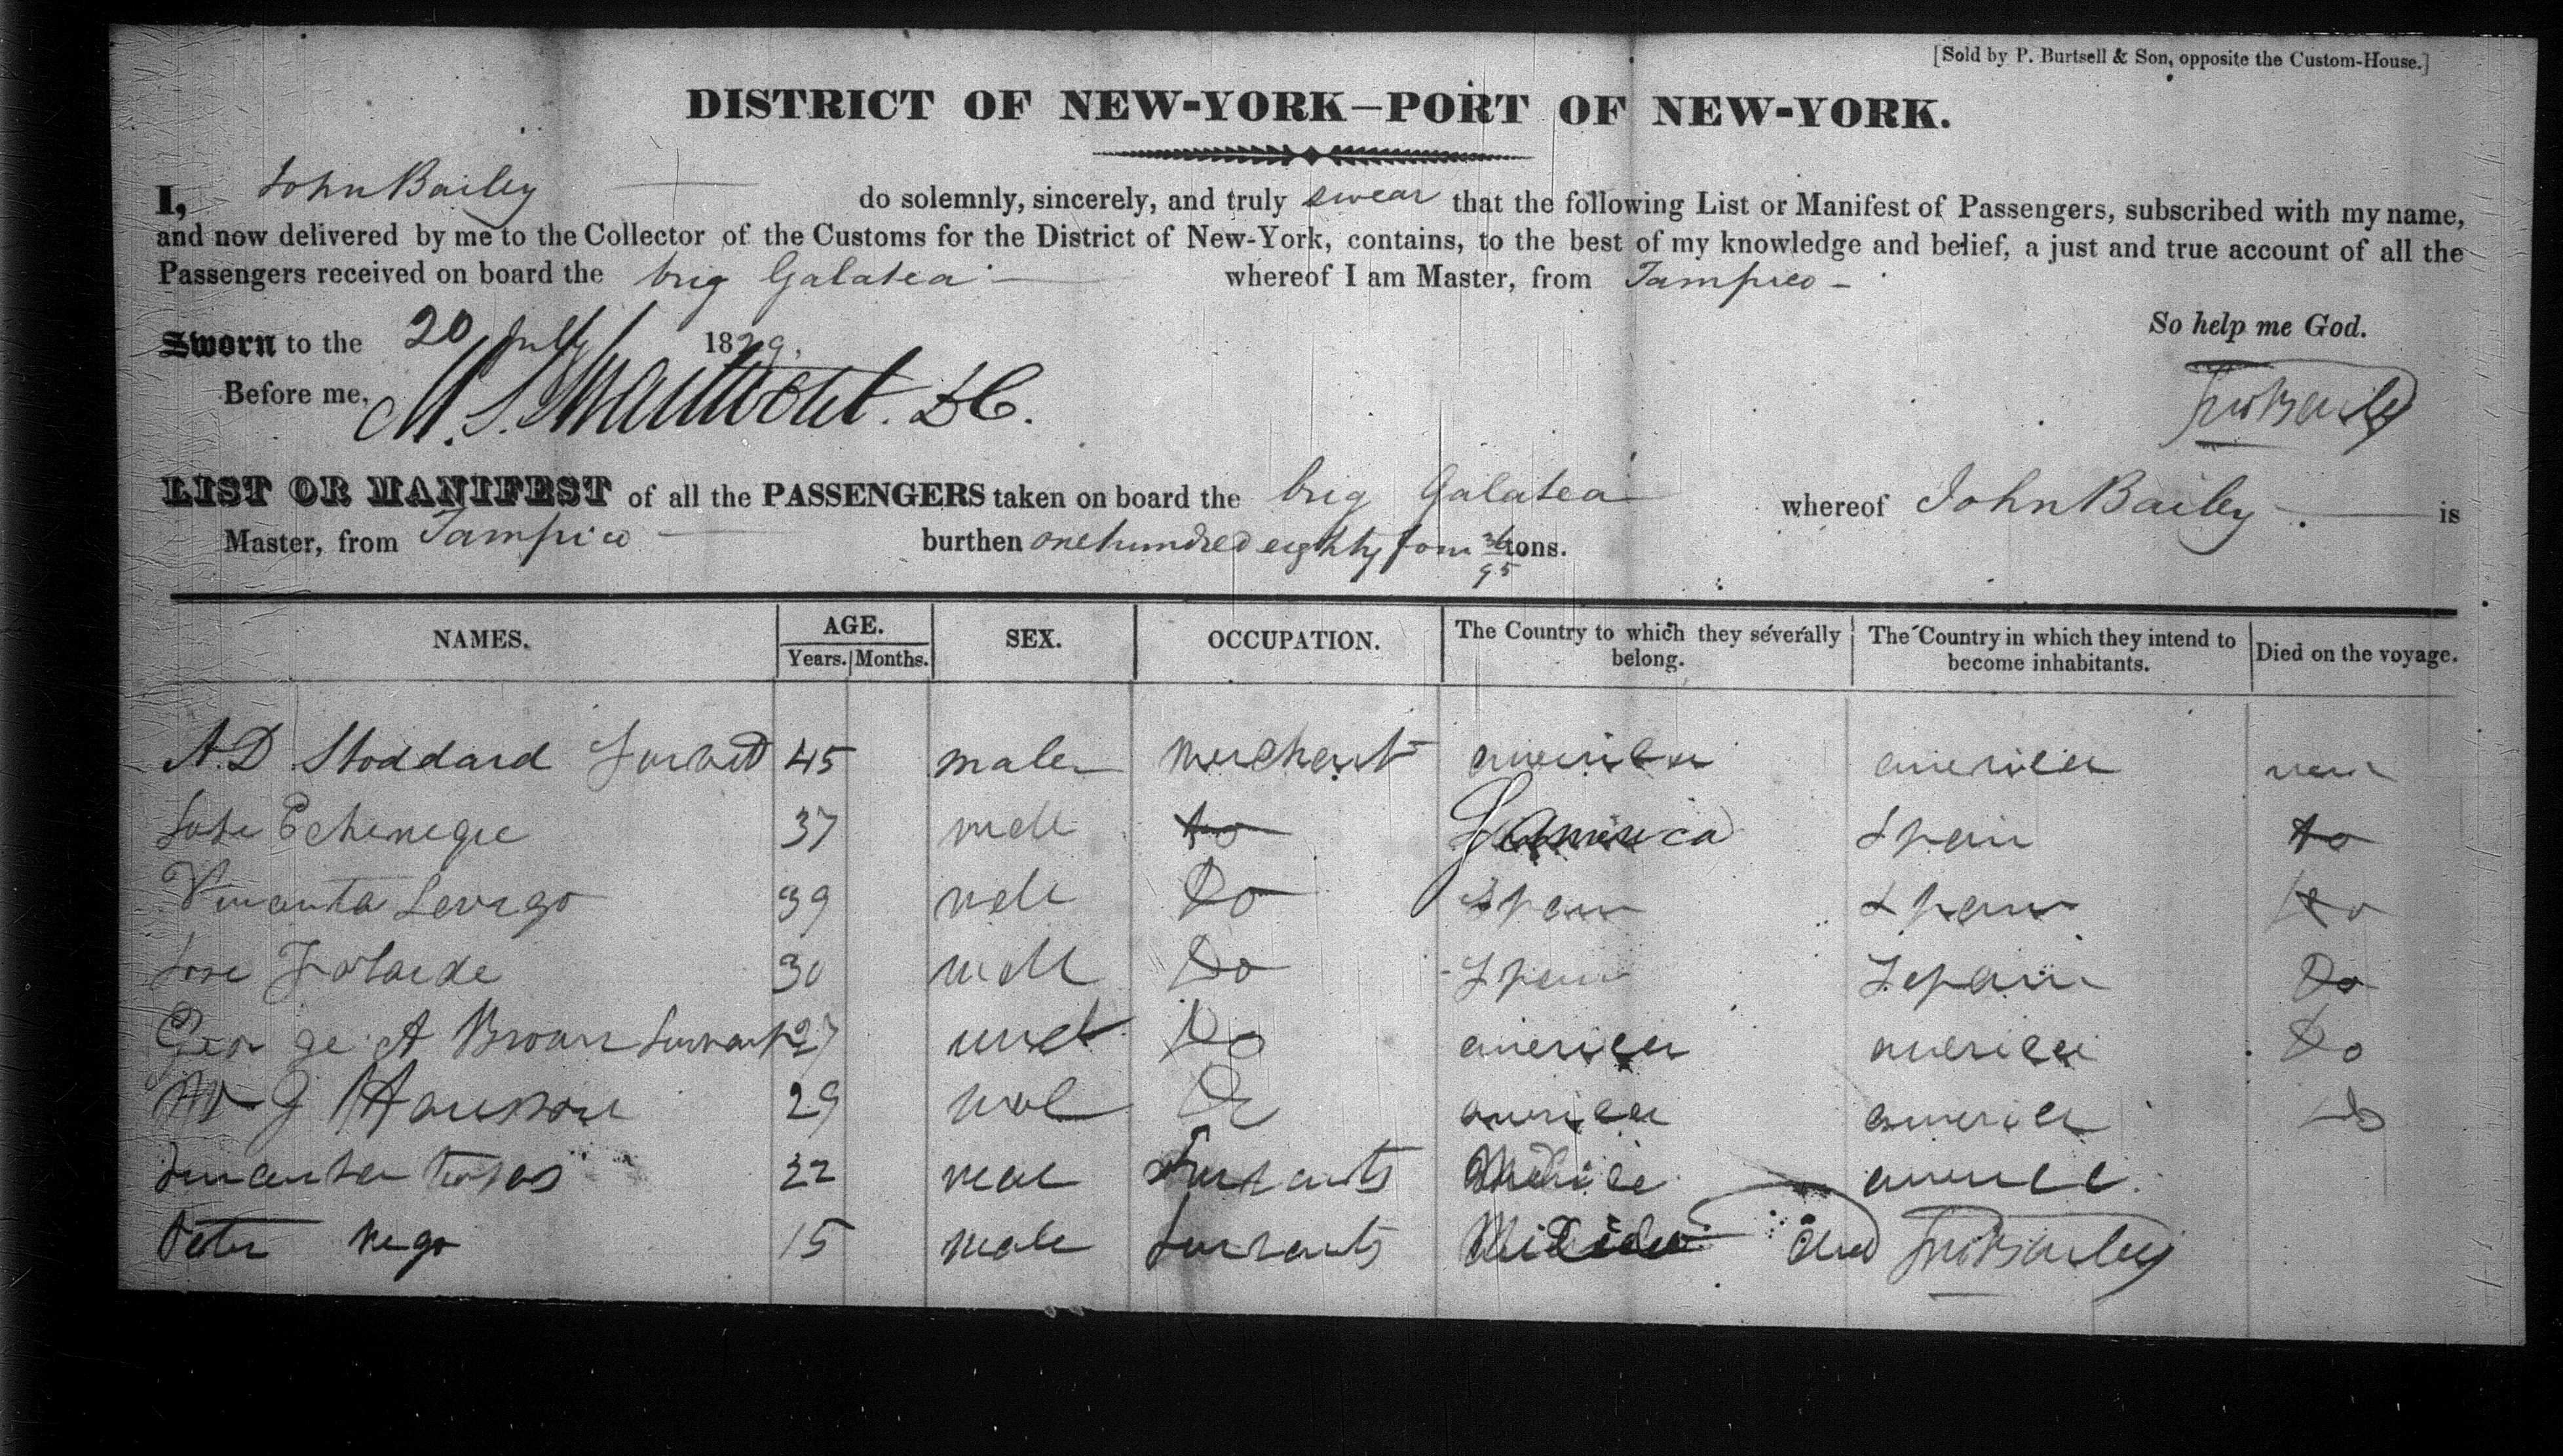 [Sold by P. Burtsell & Son, opposite the Custom-House.]
DISTRICT OF NEW-YORK—PORT OF NEW-YORK.
I, John Bailey do solemnly, sincerely, and truly swear that the following List or Manifest of Passengers, subscribed with my name,
and now delivered by me to the Collector of the Customs for the District of New-York, contains, to the best of my knowledge and belief, a just and true account of all the
Passengers received on board the brig Galatea whereof I am Master, from Tampico
Sworn to the 20 July 1829. So help me God.
Before me, M. Swartwout. D C. Jno Bailey
LIST OR MANIFEST of all the PASSENGERS taken on board the brig Galatea whereof John Bailey is
Master, from Tampico burthen one hundred eighty four 36/95 tons.
NAMES. AGE. Years. Months. SEX. OCCUPATION. The Country to which they severally belong. The Country in which they intend to become inhabitants. Died on the voyage.
A. D Stoddard 45 male merchant america america
37 male Do Spain Do
39 male Do Spain Spain Do
Jose 30 male Do Spain Spain Do
George A Brown 27 male Do america america Do
Wm J 29 male Do america america Do
22 male
Peter 15 male Jno Bailey